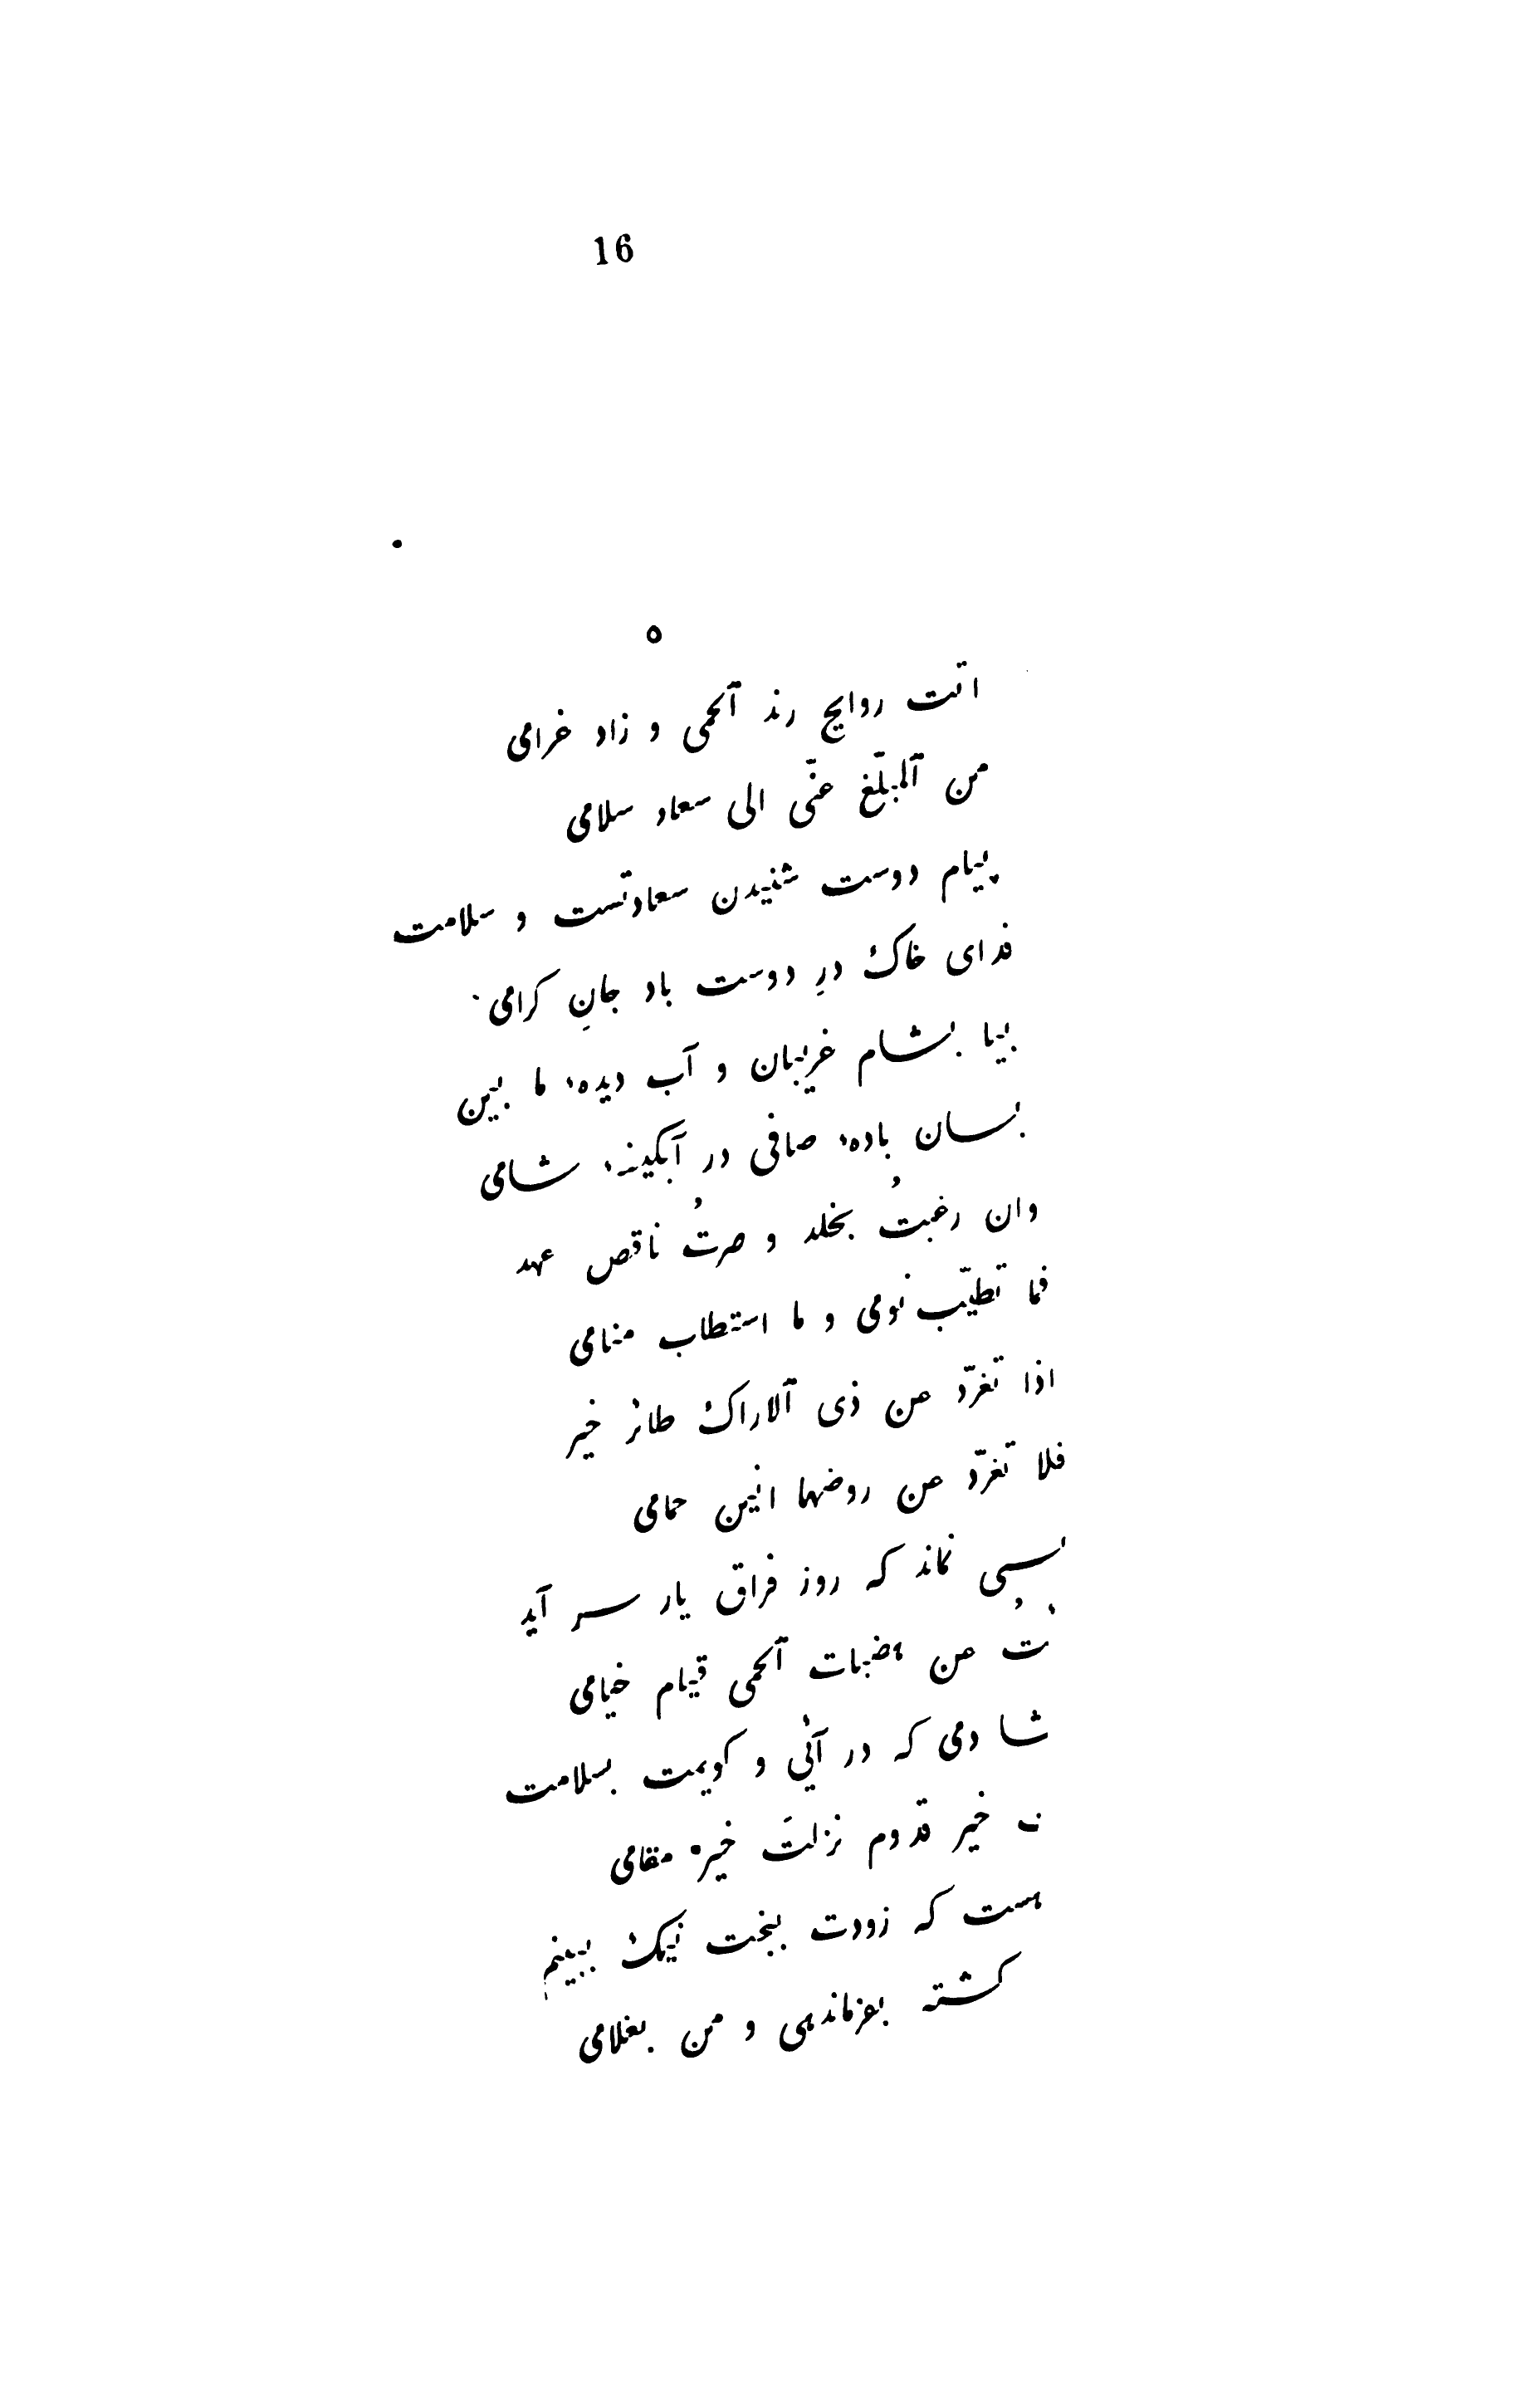 16
٥
اتت روایح رند ٱلحمی و زاد غرامی
من ٱلمبلّغ عنّی الی سعاد سلامی
پیام دوست شنیدن سعادتست و سلامت
فدای خاک درِ دوست باد جانِ کرامی
بیا بشام غریبان و آب دیدهٔ ما ببین
بسان بادهٔ صافی در آبکینهٔ شامی
وان رغبتُ بخلد و صرتُ ناقص عهد
فما تطیّب نومی و ما استطاب منامی
اذا تغرّد عن ذی ٱلاراک طائر خیر
فلا تغرّد عن روضها انین حمامی
بسی نماند که روز فراق یار سر آید
عن هضبات ٱلحمی قیام خیامی
شا دمی که در آئی و کویمت بسلامت
خیر قدوم نزلتَ خیره مقامی
هست که زودت ببخت نیک ببینم
کشته بفرماندهی و من بغلامی